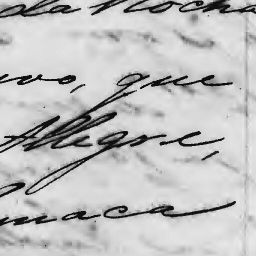 da Rocha
vo, que
Allegre,
maca